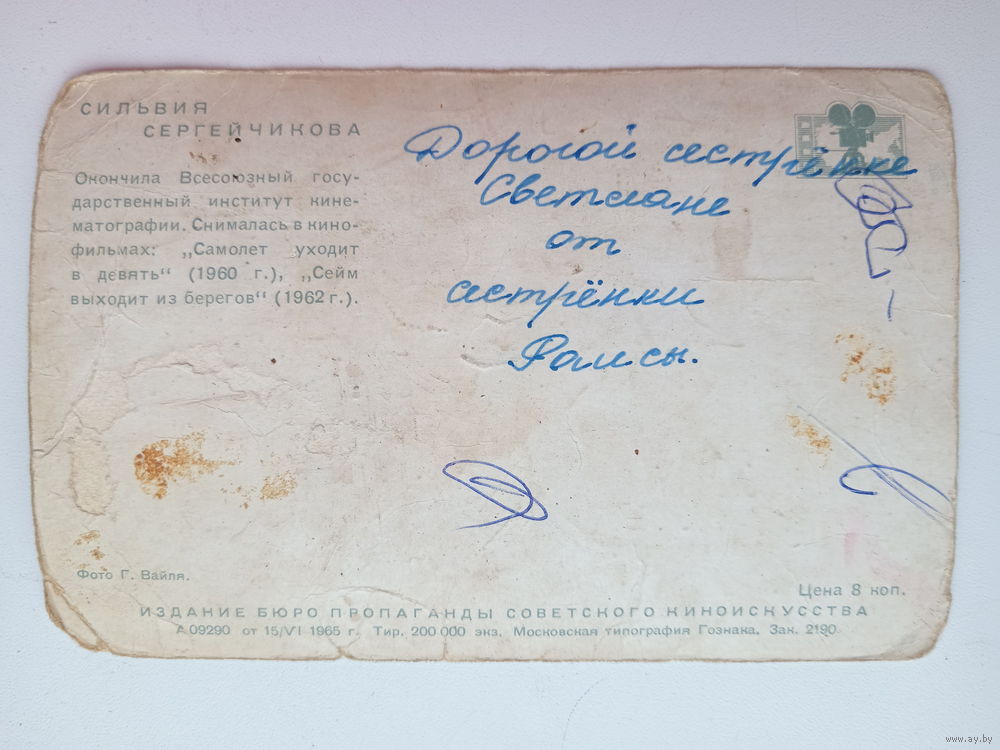 СИЛЬВИЯ
СЕРГЕЙЧИКОВА
Окончила Всесоюзный госу-
дарственный институт кине-
матографии. Снималась в кино-
фильмах: „Самолет уходит
в девять“ (1960 г.), „Сейм
выходит из берегов“ (1962 г.).
Дорогой сестрёнке
Светлане
от
сестрёнки
Раисы.
Фото Г. Вайля.
Цена 8 коп.
ИЗДАНИЕ БЮРО ПРОПАГАНДЫ СОВЕТСКОГО КИНОИСКУССТВА
А 09290 от 15/VI 1965 г. Тир. 200 000 экз. Московская типография Гознака. Зак. 2190
www.ay.by